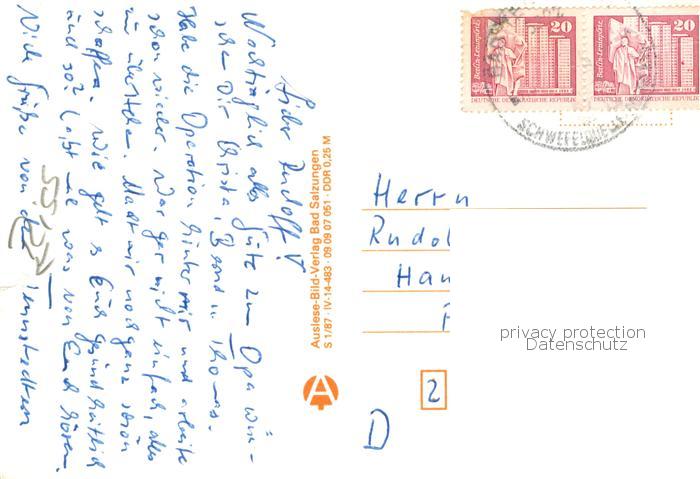 Lieber Rudolf!
Nachträglich alles Gute zum Opa wün-
schen Dir Christa, Bernd u. Thomas.
Habe die Operation hinter mir und arbeite
schon wieder. War gar nicht einfach, alles
zu überstehen. Macht mir noch ganz schön
schaffen. Wie geht's Euch gesundheitlich
und so? Laßt mal was von Euch hören.
Viele Grüße von den
Auslese-Bild-Verlag Bad Salzungen
S 1/87 · IV-14-483 · 09 09 07 051 · DDR 0,25 M
A
Berlin-Leninplatz 20
DEUTSCHE DEMOKRATISCHE REPUBLIK
Berlin-Leninplatz 20
DEUTSCHE DEMOKRATISCHE REPUBLIK
Herrn
Rudol
Han
2
D
privacy protection
Datenschutz